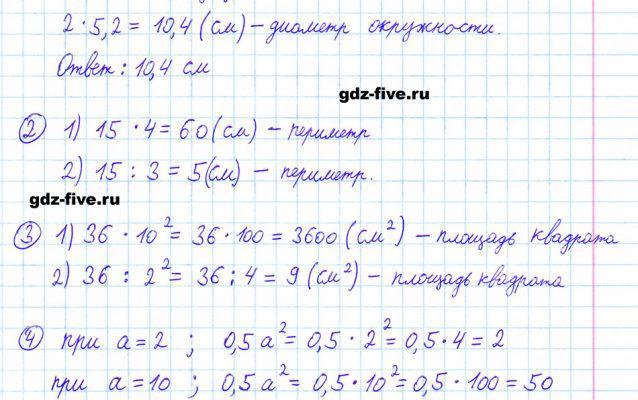 2 · 5,2 = 10,4 (см) – диаметр окружности.
Ответ: 10,4 см
gdz-five.ru
2 1) 15 · 4 = 60 (см) – периметр
2) 15 : 3 = 5 (см) – периметр.
gdz-five.ru
3 1) 36 · 10² = 36 · 100 = 3600 (см²) – площадь квадрата
2) 36 : 2² = 36 : 4 = 9 (см²) – площадь квадрата
4 при a = 2 ; 0,5 a² = 0,5 · 2² = 0,5 · 4 = 2
при a = 10 ; 0,5 a² = 0,5 · 10² = 0,5 · 100 = 50